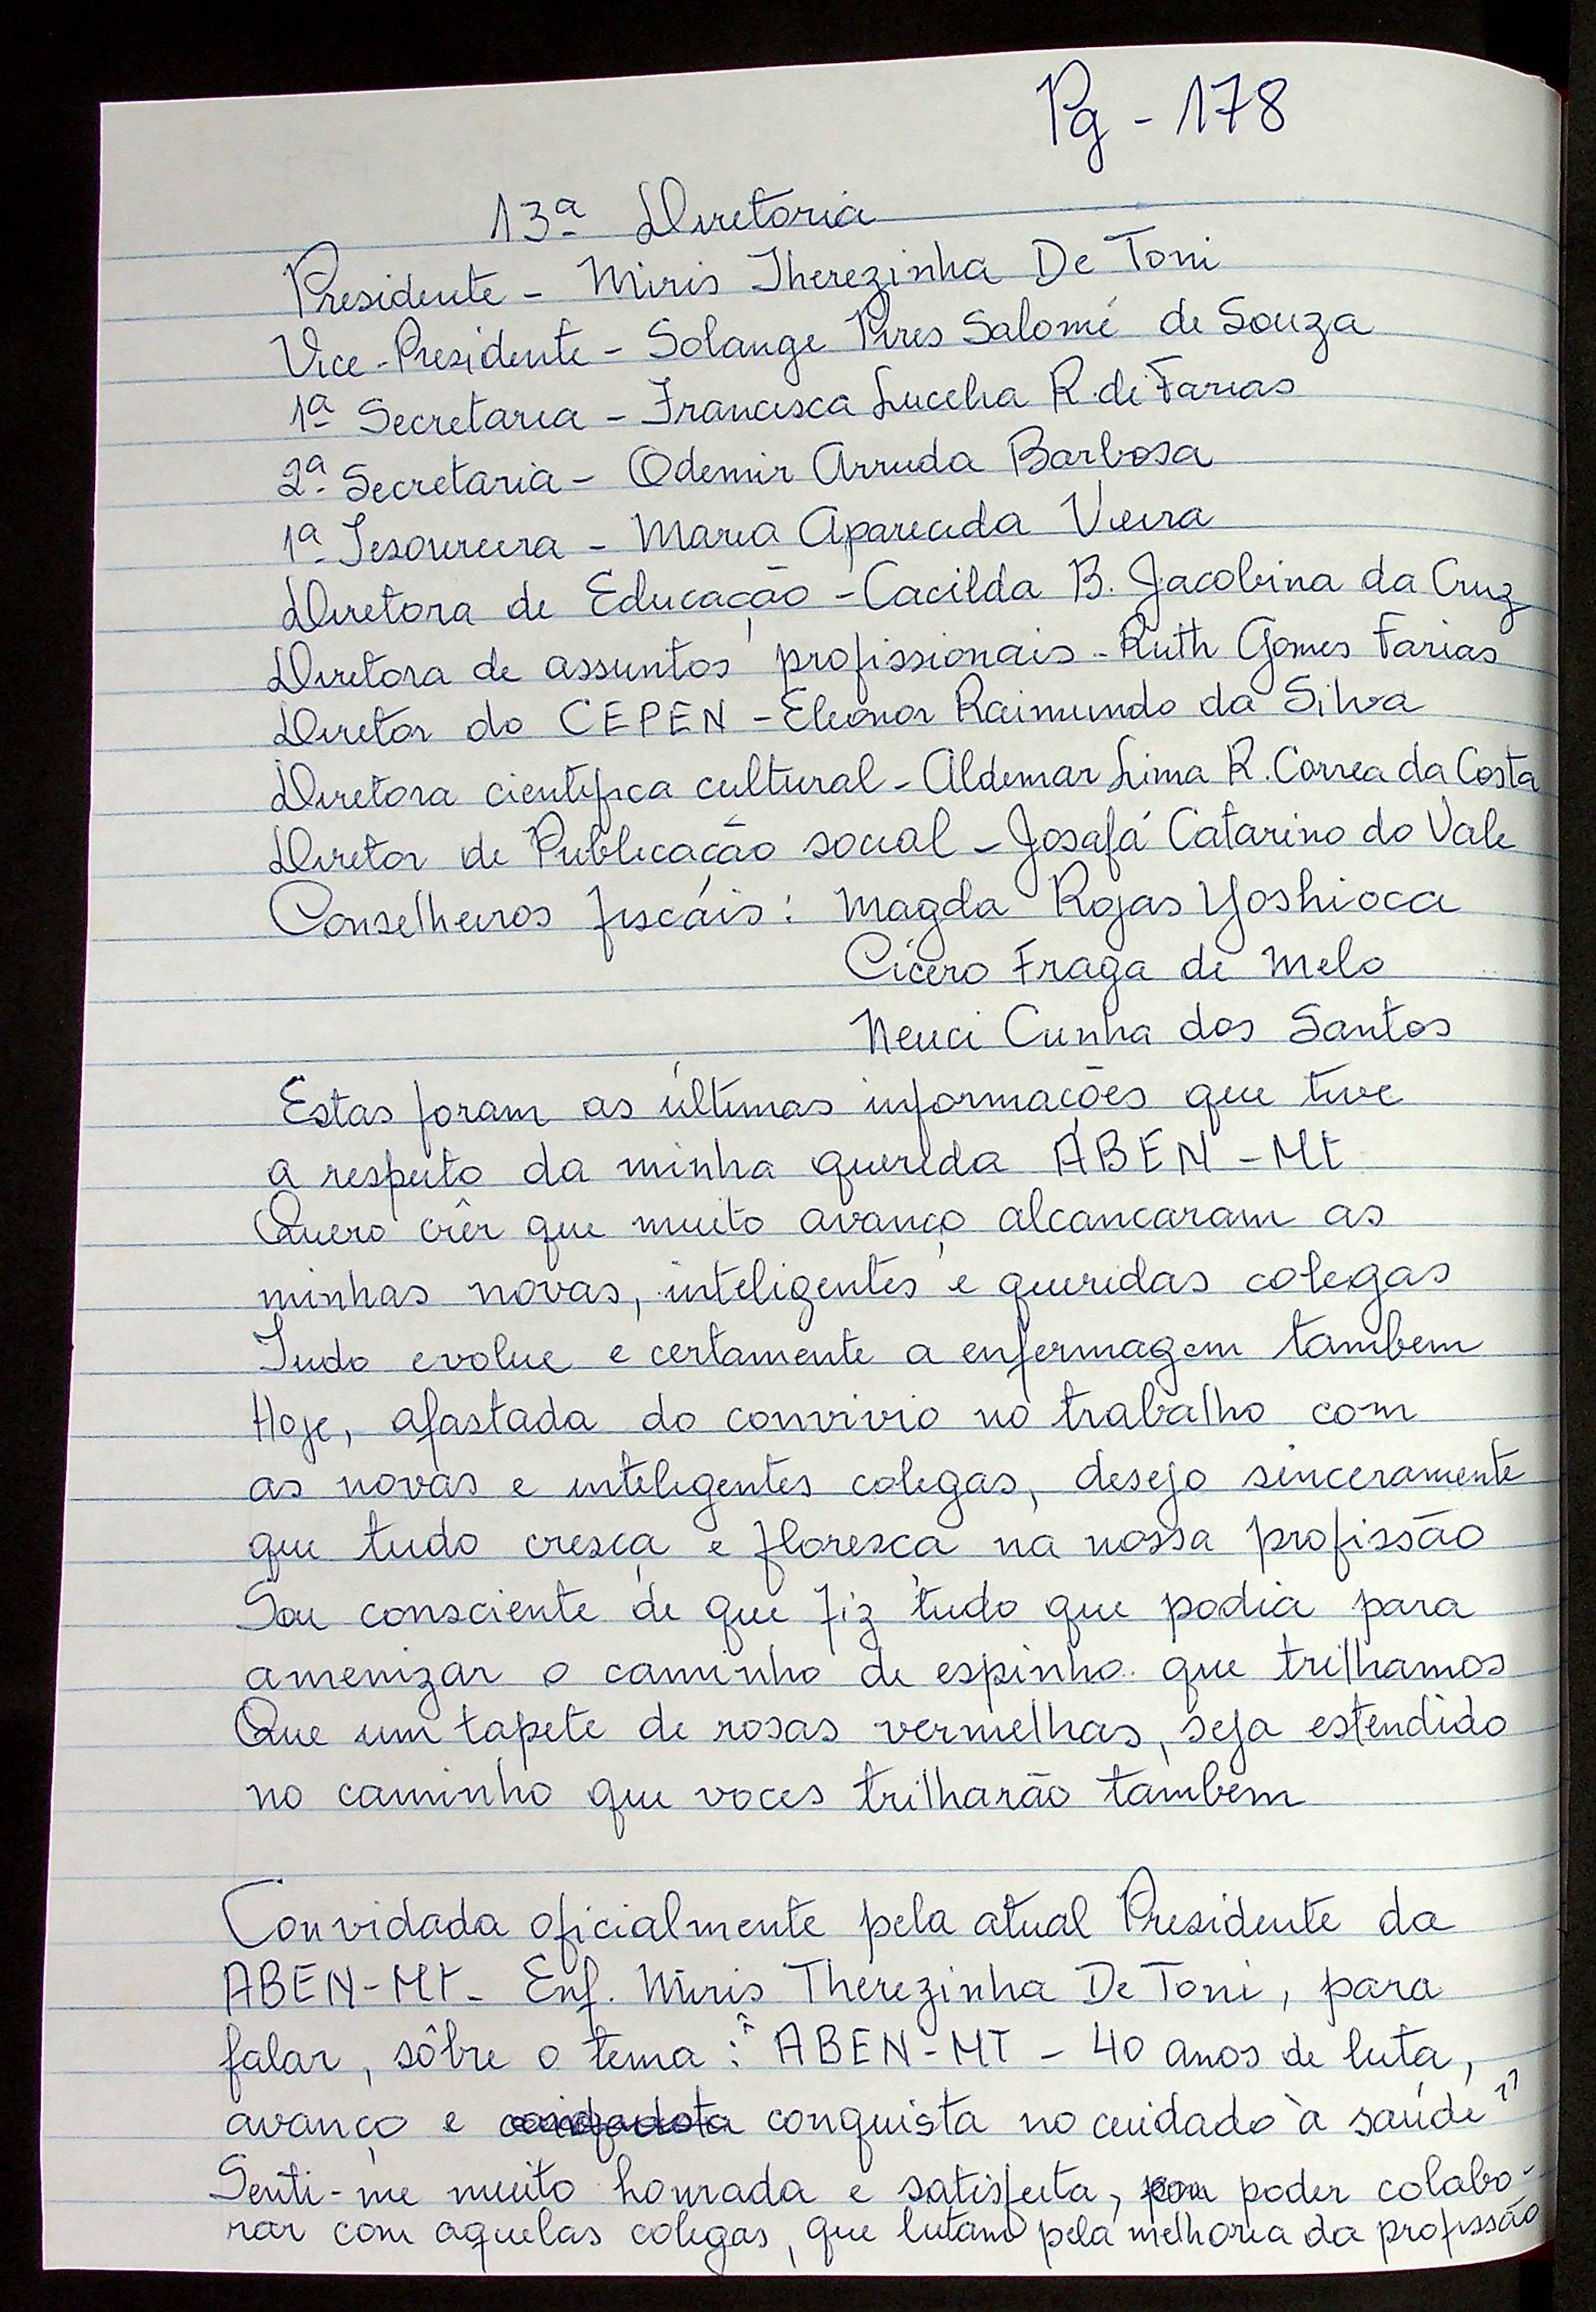 Pg - 178
13ª Diretoria
Presidente - Miris Therezinha De Toni
Vice-Presidente - Solange Pires Salomé de Souza
1ª Secretaria - Francisca Lucelia R. de Farias
2ª Secretaria - Odemir Arruda Barbosa
1ª Tesoureira - Maria Aparecida Vieira
Diretora de Educação - Cacilda B. Jacobina da Cruz
Diretora de assuntos profissionais - Ruth Gomes Farias
Diretor do CEPEN - Eleonor Raimundo da Silva
Diretora cientifica cultural - Aldemar Lima R. Correa da Costa
Diretor de Publicação social - Josafá Catarino do Vale
Conselheiros fiscáis: Magda Rojas Yoshioca
Cícero Fraga de Melo
Neuci Cunha dos Santos
Estas foram as últimas informações que tive
a respeito da minha querida ABEN - Mt
Quero crêr que muito avanço alcancaram as
minhas novas, inteligentes e queridas colegas
Tudo evolue e certamente a enfermagem tambem
Hoje, afastada do convivio no trabalho com
as novas e inteligentes colegas, desejo sinceramente
que tudo cresça e floresça na nossa profissão
Sou consciente de que fiz tudo que podia para
amenizar o caminho de espinho que trilhamos
Que um tapete de rosas vermelhas, seja estendido
no caminho que voces trilharão tambem
Convidada oficialmente pela atual Presidente da
ABEN-Mt - Enf. Miris Therezinha De Toni, para
falar, sôbre o tema: "ABEN-MT - 40 anos de luta,
avanço e conquista no cuidado à saúde"
Senti-me muito honrada e satisfeita, por poder colabo-
rar com aquelas colegas, que lutam pela melhoria da profissão